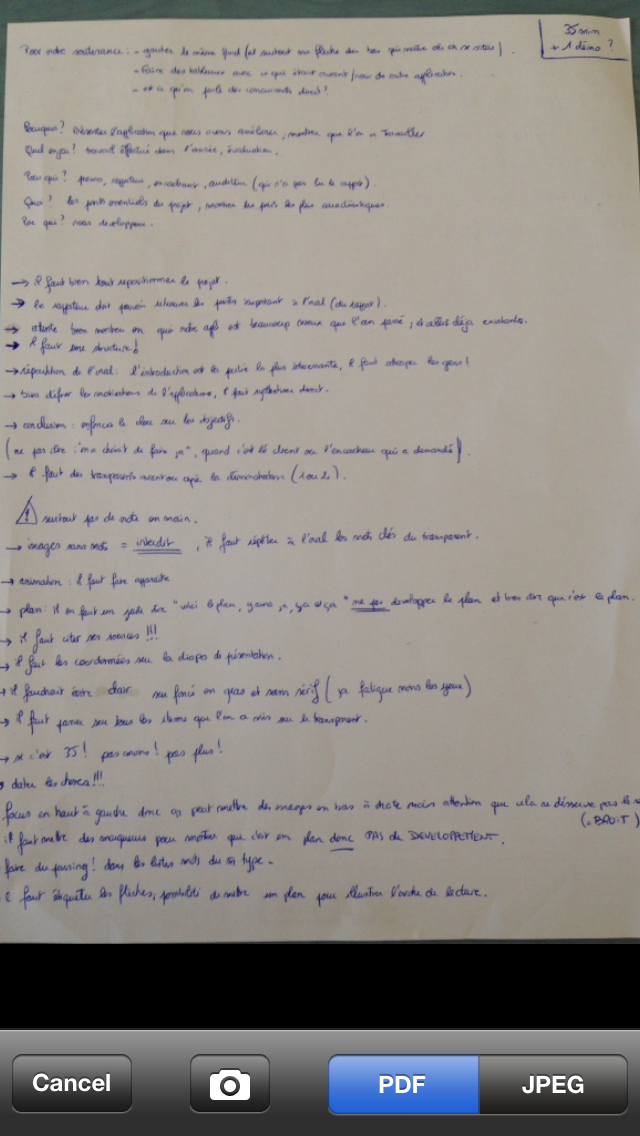 35 min
+ 1 démo ?
Pour notre soutenance : - garder le même fond (et surtout une flèche du bas qui montre où on se situe).
- Faire des tableaux avec ce qui était avant / de notre application.
- est ce qu'on parle des concurrents direct ?
Pourquoi ? Présenter l'application que nous avons améliorer, montrer que l'on a travailler
Quel enjeu ? travail effectué dans l'année, évaluation.
Pour qui ? promo, rapporteur, encadrant, auditoire (qui n'a pas lu le rapport).
Quoi ? les points essentiels du projet, montrer les plus caractéristiques.
Par qui ? nous développeur.
→ Il faut bien tout repositionner le projet.
→ Le rapporteur doit pouvoir retrouver les parties important à l'oral (du rapport).
→ bien montrer en quoi notre apli est beaucoup mieux que l'an passé, et celles déjà existantes.
→ Il faut une structure !
→ répartition de l'oral : l'introduction est la partie la plus intéressante, il faut attraper les gens !
→ bien définir les motivations de l'applications, il faut direct.
→ conclusion : enfoncer le clou sur les objectifs.
(ne pas dire : "on a choisit de faire ", quand c'est le client ou l'encadrant qui a demandé).
→ Il faut des transparents avant ou après la démonstration (1 ou 2).
! surtout pas de note en main.
→ images sans mots = interdit, il faut répéter à l'oral les mots clés du transparent.
→ animation : il faut faire apparaître
→ plan : il en faut un juste dire "voici le plan, y aura , ça et ça" ne pas développer le plan et bien dire que c'est le plan.
→ il faut citer ses sources !!!
→ il faut les coordonnées sur la diapos de présentation.
→ il faudrait écrire clair sur foncé en gras et sans sérif (ça fatigue moins les yeux)
→ il faut passer sur tous les items que l'on a mis sur le transparent.
→ si c'est 35 ! pas moins ! pas plus !
dater les choses !!!
focus en haut à gauche donc on peut mettre des images en bas à droite mais attention que cela ne desserve pas le
(= BRUIT)
il faut mettre des marqueurs pour montrer que c'est un plan donc PAS de DEVELOPPEMENT.
faire du parsing ! dans les listes mots du m type.
Il faut étiqueter les flèches, possibilité de mettre un plan pour illustrer l'ordre de lecture.
Cancel
PDF
JPEG